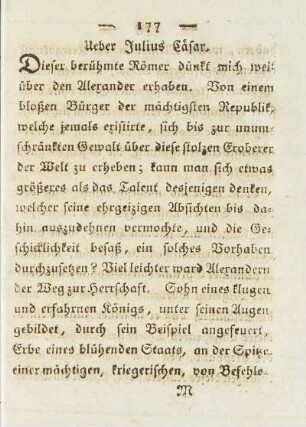 — 177 —
Ueber Julius Cäsar.
Dieser berühmte Römer dünkt mich weit
über den Alexander erhaben. Von einem
bloßen Bürger der mächtigsten Republik,
welche jemals existirte, sich bis zur unum-
schränkten Gewalt über diese stolzen Eroberer
der Welt zu erheben; kann man sich etwas
größeres als das Talent desjenigen denken,
welcher seine ehrgeizigen Absichten bis da-
hin auszudehnen vermochte, und die Ge-
schicklichkeit besaß, ein solches Vorhaben
durchzusetzen? Viel leichter ward Alexandern
der Weg zur Herrschaft. Sohn eines klugen
und erfahrnen Königs, unter seinen Augen
gebildet, durch sein Beispiel angefeuert,
Erbe eines blühenden Staats, an der Spitze
einer mächtigen, kriegerischen, von Befehls-
M